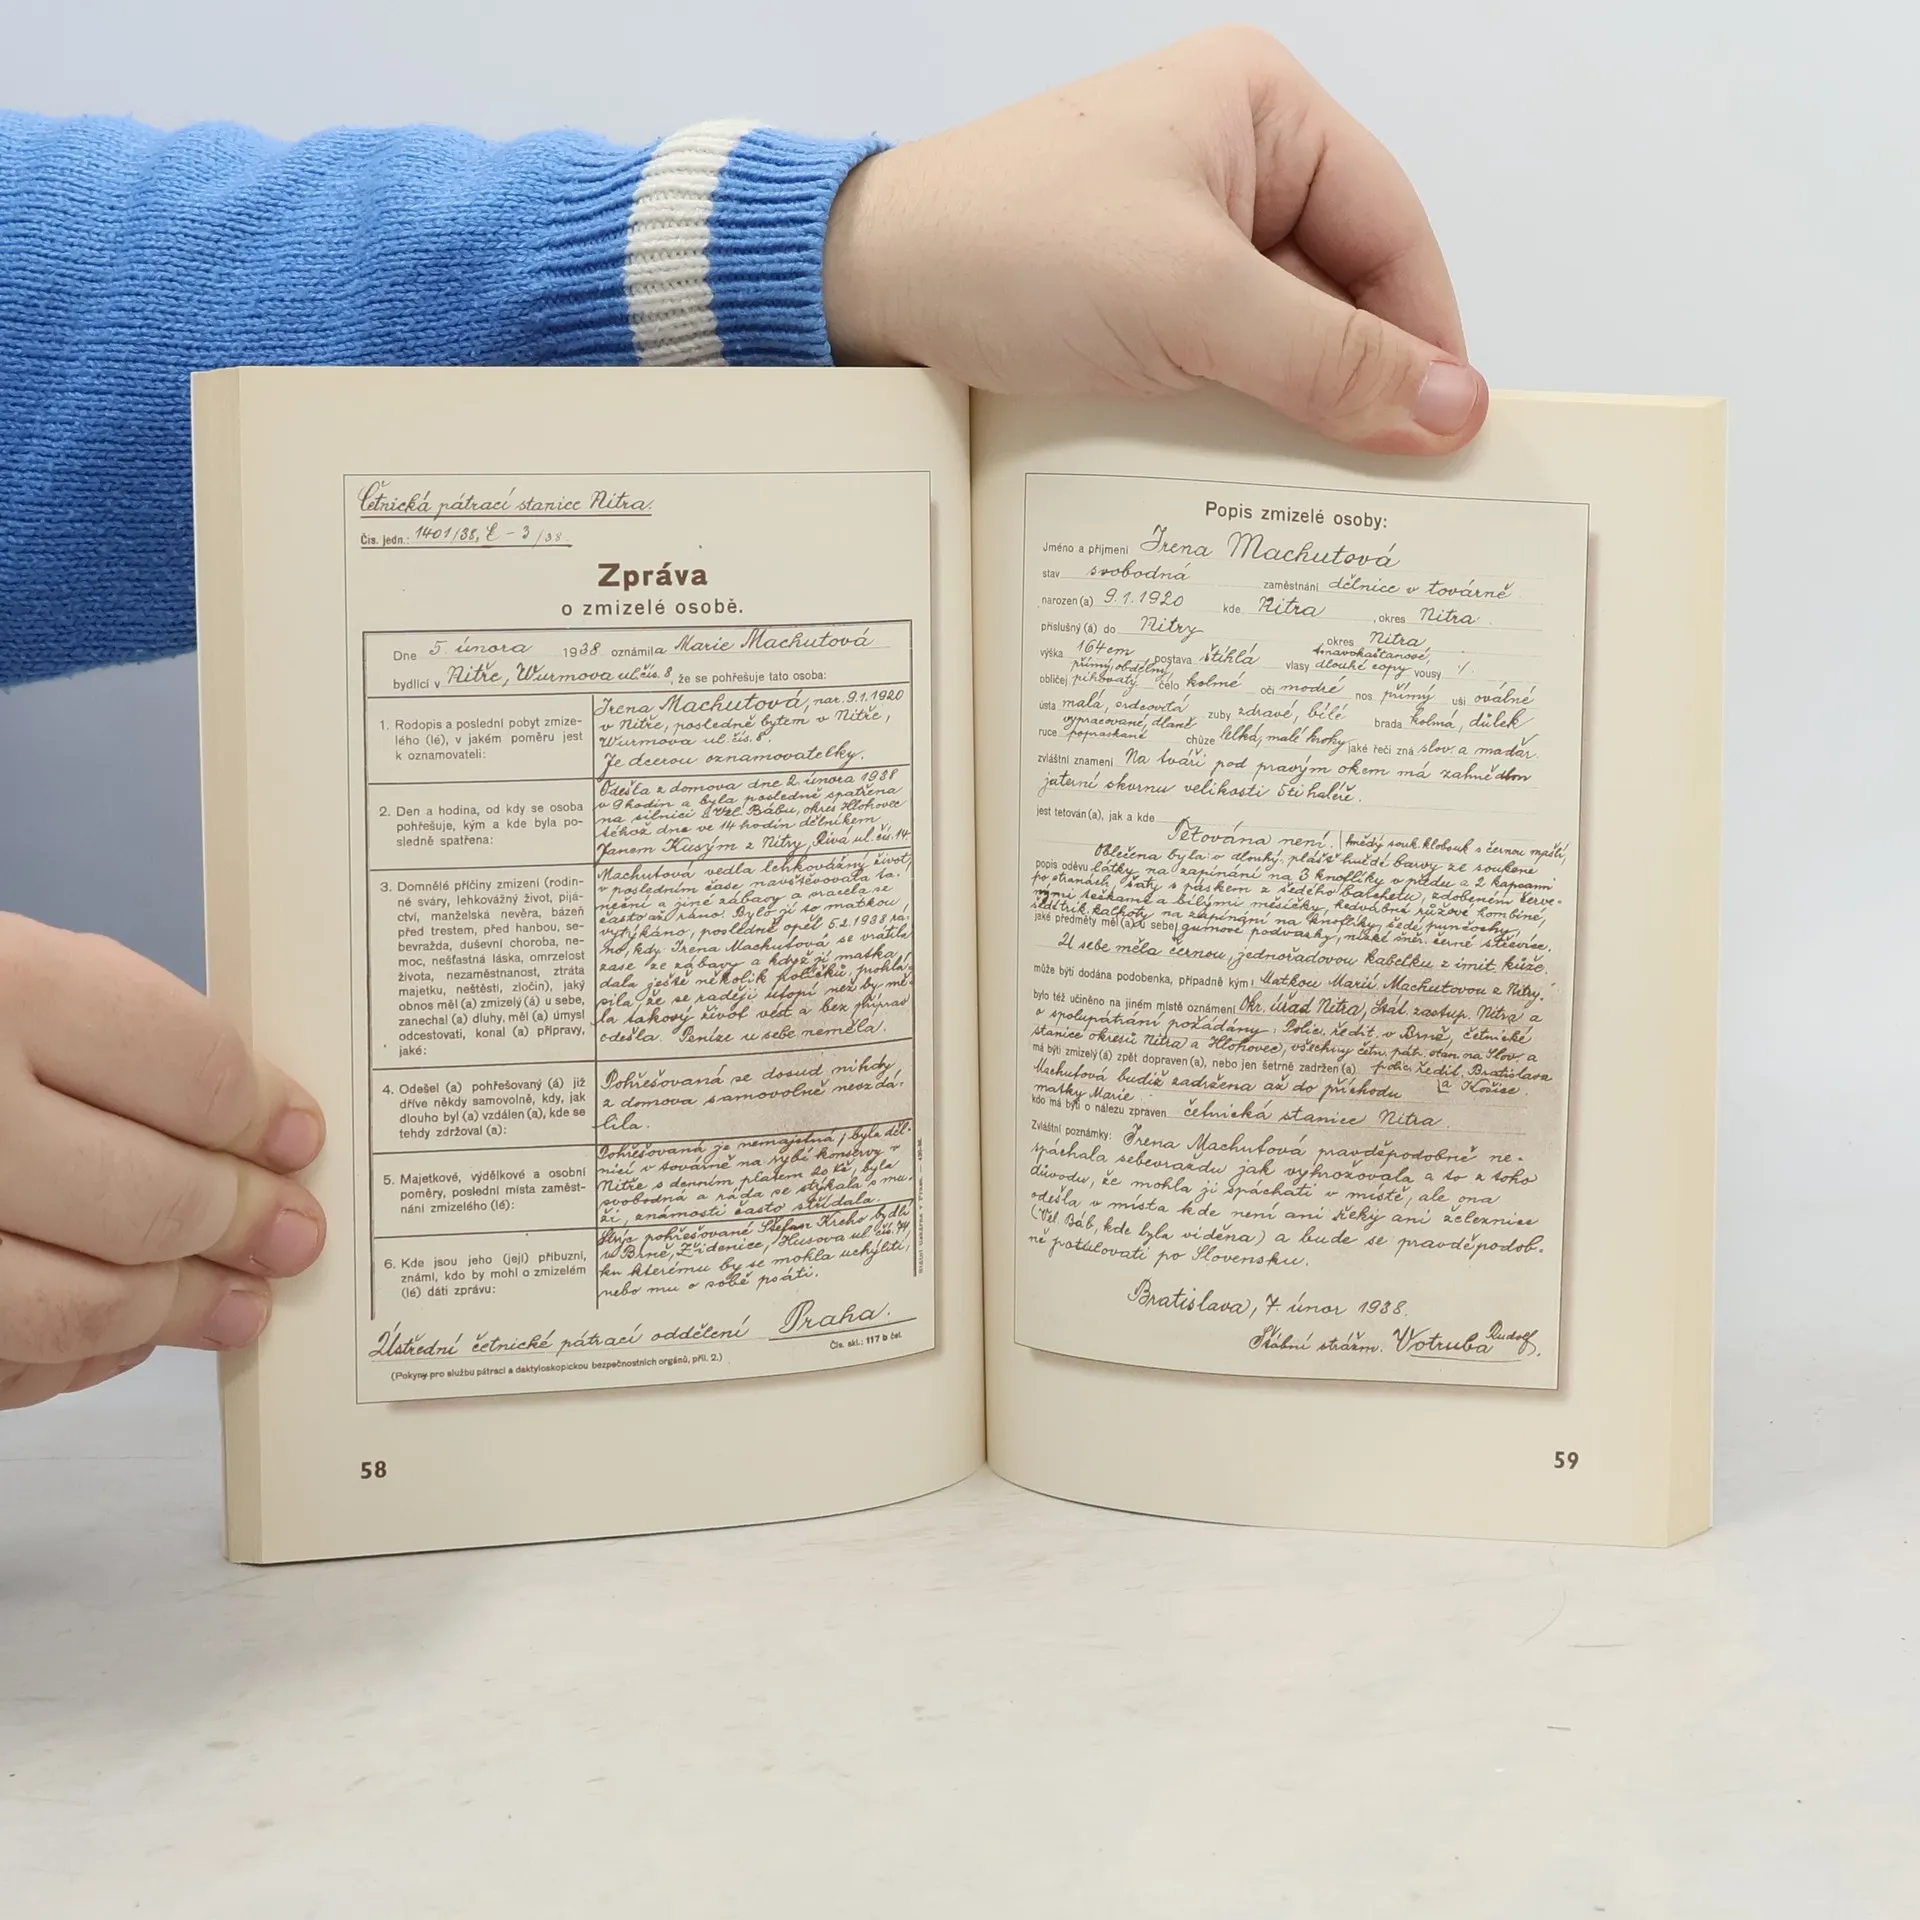 Četnická pátrací stanice Nitra.
Čís. jedn.: 1401/38, Č - 3/38.
Zpráva
o zmizelé osobě.
Dne 5 února 1938 oznámila Marie Machutová
bydlící v Nitře, Wurmova ul. čís. 8, že se pohřešuje tato osoba:
1. Rodopis a poslední pobyt zmize-
lého (lé), v jakém poměru jest
k oznamovateli:
Irena Machutová, nar. 9.1.1920
v Nitře, posledně bytem v Nitře,
Wurmova ul. čís. 8.
Je dcerou oznamovatelky.
2. Den a hodina, od kdy se osoba
pohřešuje, kým a kde byla po-
sledně spatřena:
Odešla z domova dne 2. února 1938
v 9 hodin a byla posledně spatřena
na silnici u Vel. Bábu, okres Hlohovec
téhož dne ve 14 hodin dělníkem
Janem Kusým z Nitry, Rivá ul. čís. 14
3. Domnělé příčiny zmizení (rodin-
né sváry, lehkovážný život, pijá-
ctví, manželská nevěra, bázeň
před trestem, před hanbou, se-
bevražda, duševní choroba, ne-
moc, nešťastná láska, omrzelost
života, nezaměstnanost, ztráta
majetku, neštěstí, zločin), jaký
obnos měl (a) zmizelý (á) u sebe,
zanechal (a) dluhy, měl (a) úmysl
odcestovati, konal (a) přípravy,
jaké:
Machutová vedla lehkovážný život,
v poslednim čase navštěvovala ta-
neční a jiné zábavy a vracela se
často až ráno. Bylo jí to matkou
vytýkáno, posledně opět 5.2.1938 rá-
no, kdy Irena Machutová se vrátila
zase ze zábavy a když jí matka
dala ještě několik políčků, prohlá-
sila, že se raději utopí než by mě-
la takový život vést a bez příprav
odešla. Peníze u sebe neměla.
4. Odešel (a) pohřešovaný (á) již
dříve někdy samovolně, kdy, jak
dlouho byl (a) vzdálen (a), kde se
tehdy zdržoval (a):
Pohřešovaná se dosud nikdy
z domova samovolně nevzdá-
lila.
5. Majetkové, výdělkové a osobní
poměry, poslední místa zaměst-
nání zmizelého (lé):
Pohřešovaná je nemajetná, byla děl-
nicí v továrně na rybí konservy v
Nitře s denním platem 20 Kč, byla
svobodná a ráda se stýkala s mu-
ži, známosti často střídala.
6. Kde jsou jeho (její) příbuzní,
známí, kdo by mohl o zmizelém
(lé) dáti zprávu:
Strýc pohřešované Štefan Kreho bydlí
v Brně, Židenice, Husova ul. čís. 74,
ku kterému by se mohla uchýliti,
nebo mu o sobě psáti.
Ústřední četnické pátrací oddělení Praha.
Čís. skl.: 117 b čet.
(Pokyny pro službu pátrací a daktyloskopickou bezpečnostních orgánů, příl. 2.)
58
Popis zmizelé osoby:
Jméno a příjmení Irena Machutová
stav svobodná zaměstnání dělnice v továrně
narozen (a) 9.1.1920 kde Nitra, okres Nitra.
příslušný (á) do Nitry okres Nitra,
výška 164 cm postava štíhlá vlasy tmavokaštanové, dlouhé copy vousy ./.
obličej přímý, obdélný, pihovatý čelo kolmé oči modré nos přímý uši oválné
ústa malá, srdcovitá zuby zdravé, bílé brada kolmá, důlek
ruce vypracované, dlaně popraskané chůze lehká, malé kroky jaké řeči zná slov. a maďar.
zvláštní znamení Na tváři pod pravým okem má zahnědlou
jaterní skvrnu velikosti 5ti haléře.
jest tetován (a), jak a kde
Tetována není. hnědý souk. klobouk s černou mašlí,
Oblečena byla: v dlouhý plášť hnědé barvy ze soukené
popis oděvu látky na zapínání na 3 knoflíky v předu a 2 kapsami
po stranách, šaty s páskem z šedého barchetu, zdobeném červe-
nými tečkami a bílými měsíčky, hedvábné růžové kombiné,
šedé trik. kalhoty na zapínání na knoflíky, šedé punčochy,
jaké předměty měl (a) u sebe gumové podvazky, nízké šněr. černé střevíce.
U sebe měla černou, jednořadovou kabelku z imit. kůže.
může býti dodána podobenka, případně kým: Matkou Marií Machutovou z Nitry.
bylo též učiněno na jiném místě oznámení Okr. úřad Nitra, Stát. zastup. Nitra a
o spolupátrání požádány: Polic. ředit. v Brně, četnické
stanice okresů Nitra a Hlohovec, všechny četn. pátr. stan. na Slov. a
má býti zmizelý (á) zpět dopraven (a), nebo jen šetrně zadržen (a) polic. ředit. Bratislava
Machutová budiž zadržena až do příchodu a Košice.
matky Marie
kdo má býti o nálezu zpraven četnická stanice Nitra.
Zvláštní poznámky: Irena Machutová pravděpodobně ne-
spáchala sebevraždu jak vyhrožovala a to z toho
důvodu, že mohla ji spáchati v místě, ale ona
odešla v místa kde není ani řeky ani železnice
(Vel. Báb, kde byla viděna) a bude se pravděpodob-
ně potulovati po Slovensku.
Bratislava, 7. únor 1938.
Štábní strážm. Votruba Rudolf.
59